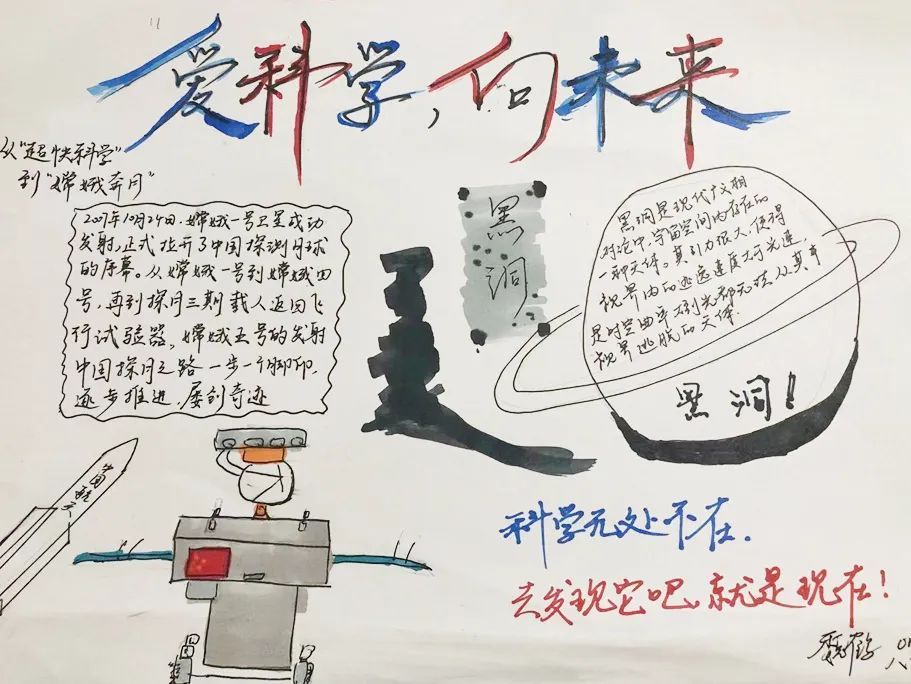 爱科学，向未来
从"超快科学"
到"嫦娥奔月"
2007年10月24日.嫦娥一号卫星成功
发射,正式拉开了中国探测月球
的序幕。从嫦娥一号到嫦娥四
号,再到探月三期载人返回飞
行试验器,嫦娥五号的发射
中国探月之路一步一个脚印,
逐步推进,屡创奇迹
黑洞
黑洞是现代广义相
对论中,宇宙空间内存在的
一种天体。其引力很大,使得
视界内的逃逸速度大于光速,
是时空曲率大到光都无法从其事
视界逃脱的天体.
黑洞!
科学无处不在.
去发现它吧、就是现在!